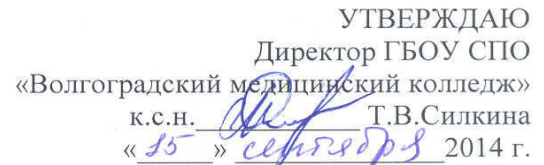 УТВЕРЖДАЮ
Директор ГБОУ СПО
«Волгоградский медицинский колледж»
к.с.н. Т.В.Силкина
«15» сентября 2014 г.